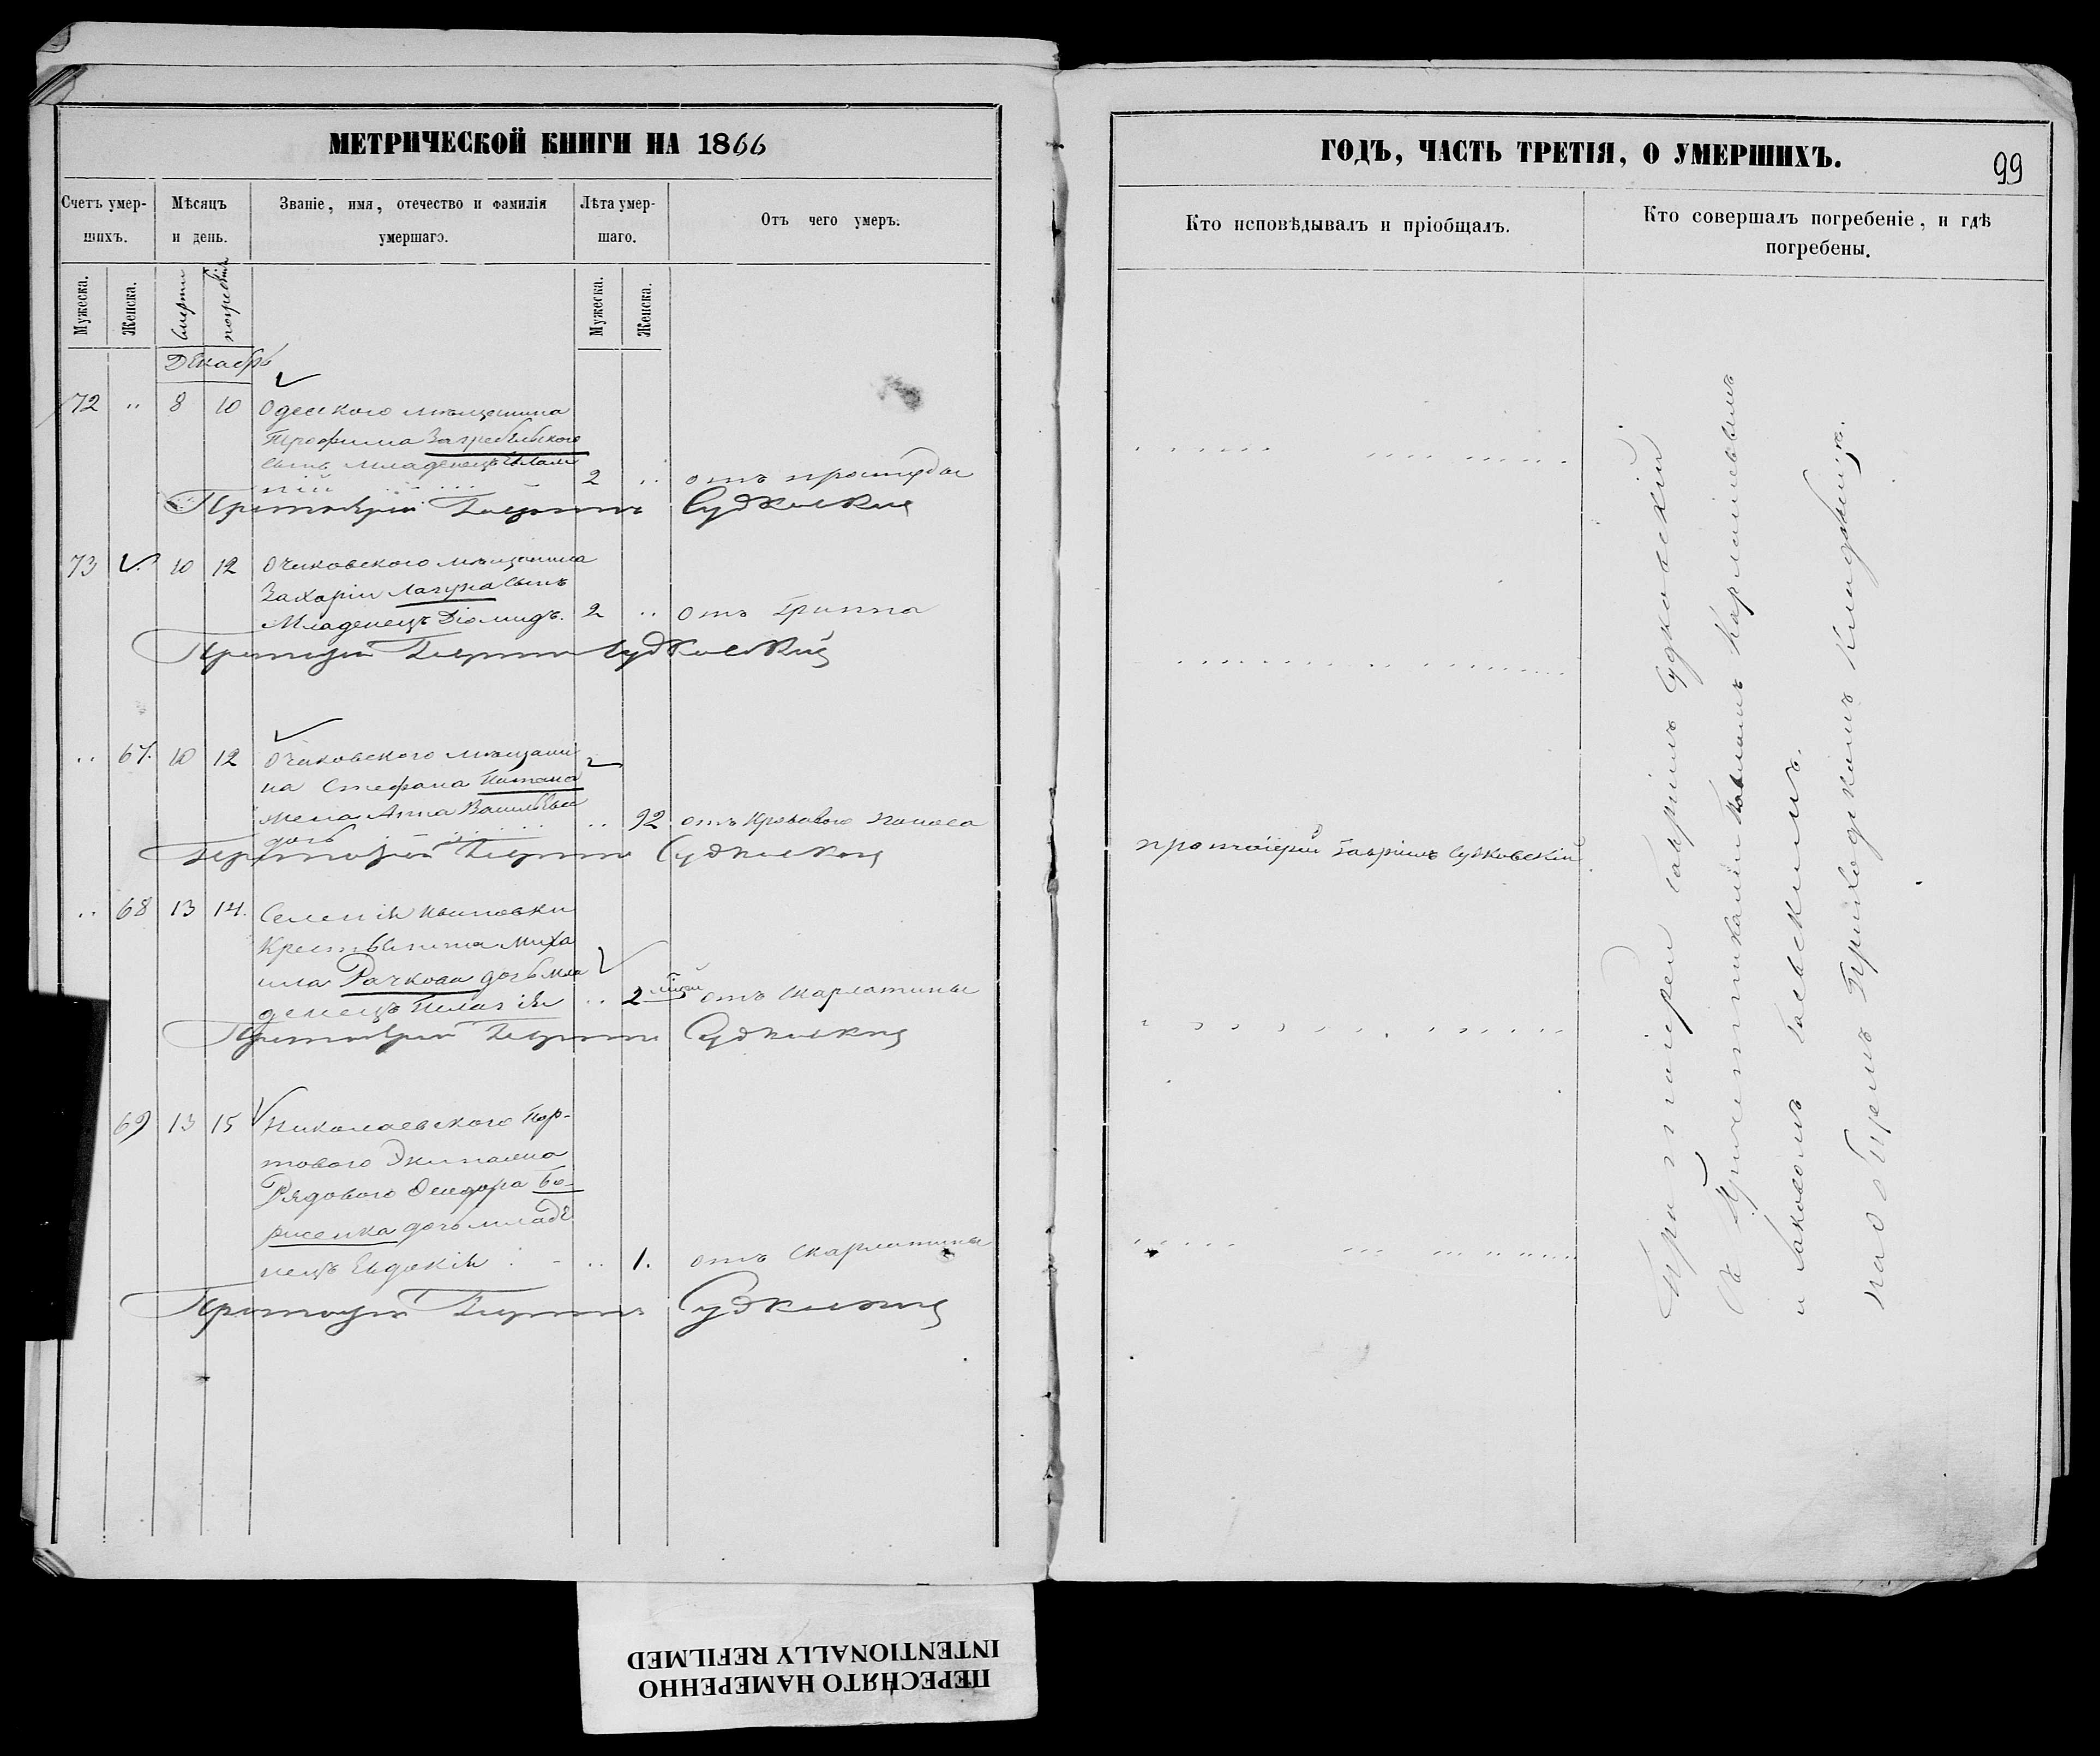 МЕТРИЧЕСКОЙ КНИГИ НА 1866
Счетъ умер-
шихъ.
Мѣсяцъ
и день.
Званіе, имя, отечество и фамилія
умершаго.
Лѣта умер-
шаго.
Отъ чего умеръ.
Мужеска.
Женска.
смерти
погребенія
Мужеска.
Женска.
Декабрь
72 „ 8 10 Одесского мѣщанина
Трофима Загребельного
сынъ младенецъ
2 „ отъ простуды
Протоіерей Гавріилъ Судковскій
73 10 12 Очаковского мѣщанина
Захаріи Лагута сынъ
Младенецъ Діомидъ. 2 „ отъ Гриппа
Протоіерей Гавріилъ Судковскій
„ 67. 10 12 Очаковского мѣщани
на Стефана
жена Анна Васильева
дочь „ 92 отъ Кроваваго поноса
Протоіерей Гавріилъ Судковскій
„ 68 13 14. Селенія
Крестьянина Миха
ила Рачкова дочь мла
денецъ Пелагія „ 2 отъ скарлатины
Протоіерей Гавріилъ Судковскій
69 13 15 Николаевского Пор-
тового Экипажа
Рядового Ѳеодора Бо-
рисенка дочь младе
нецъ Евдокія „ 1. отъ Скарлатины
Протоіерей Гавріилъ Судковскій
ГОДЪ, ЧАСТЬ ТРЕТІЯ, О УМЕРШИХЪ.
99
Кто исповѣдывалъ и пріобщалъ.
Кто совершалъ погребеніе, и гдѣ
погребены.
протоіерей Гавріилъ Судковскій
Протоіерей Гавріилъ Судковскій
съ Причетниками Павломъ
и Яковомъ
на Приходскомъ Кладбищѣ.
ПЕРЕСНЯТО НАМЕРЕННО
INTENTIONALLY REFILMED